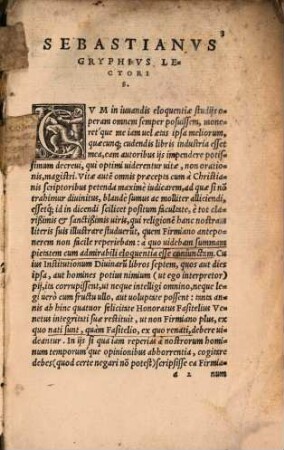 SEBASTIANVS
GRYPHIVS LE-
CTORI
S.
CVM in iuuandis eloquentiæ studijs o-
peram omnem semper posuissem, mone-
ret'que me iam uel ætas ipsa meliorum,
quæcunq; cudendis libris industria esset
mea, eam autoribus ijs impendere potis-
simum decreui, qui optimi uiderentur uitæ, non oratio-
nis, magistri. Vitæ autē omnis præcepta cùm à Christia-
nis scriptoribus petenda maximè iudicarem, ad quæ sī nō
trahimur diuinitus, blandè sumus ac molliter alliciendi,
esset'q; id in dicendi scilicet positum facultate, è tot cla-
rißimis & sanctißimis uiris, qui religionē hanc nostram
literis suis illustrare studuerūt, quem Firmiano antepo-
nerem non facile reperiebam: à quo uidebam summam
pietatem cum admirabili eloquentia esse coniunctam. Cu
ius Institutionum Diuinarū libros septem, quos aut dies
ipsa, aut homines potius nimium (ut ego interpretor)
pij, ita corrupissent, ut neque intelligi omnino, neque le-
gi uero cum fructu ullo, aut uoluptate possent: intra an-
nis ab hinc quatuor feliciter Honoratus Fasitelius Ve-
netus integritati suæ restituit, ut non Firmiano plus, ex
quo nati sunt, quàm Fasitelio, ex quo renati, debere ui-
deantur. In ijs si qua iam reperiat à nostrorum homi-
num temporum'que opinionibus abhorrentia, cogitare
debes (quod certe negari nō potest) scripsisse ea Firmia-
a 2 num